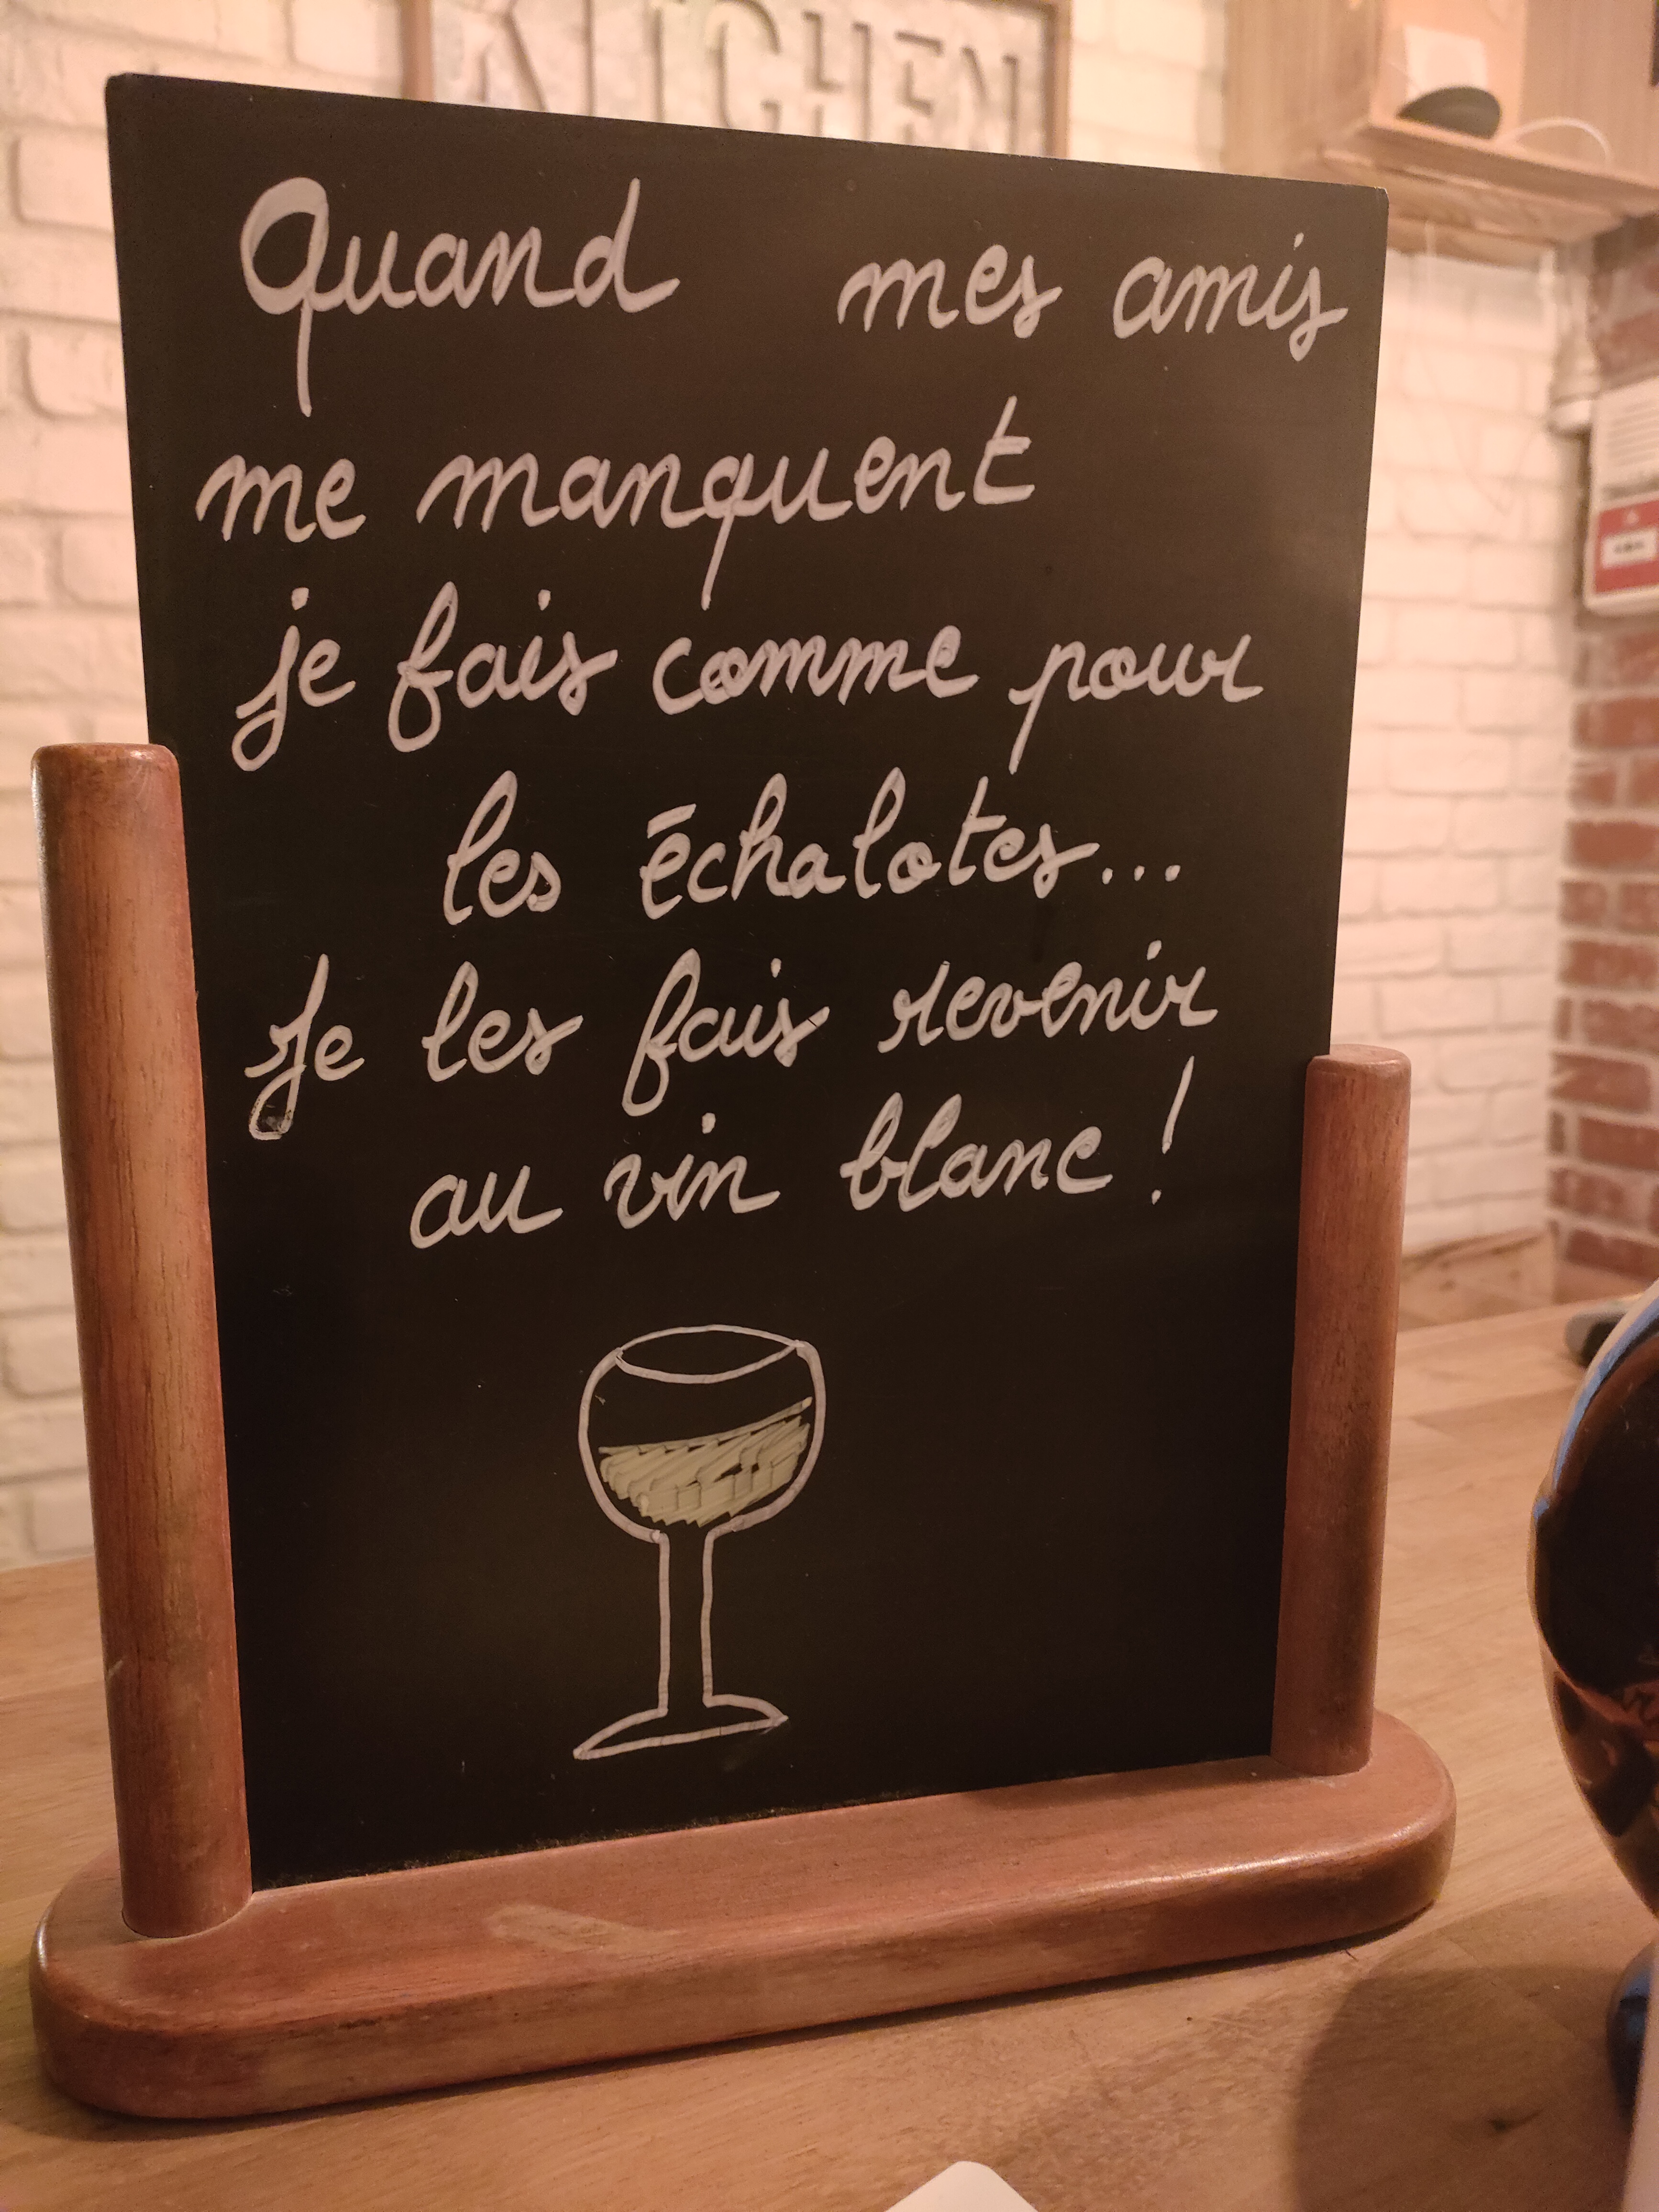 KITCHEN
Quand mes amis
me manquent
je fais comme pour
les échalotes...
Je les fais revenir
au vin blanc !